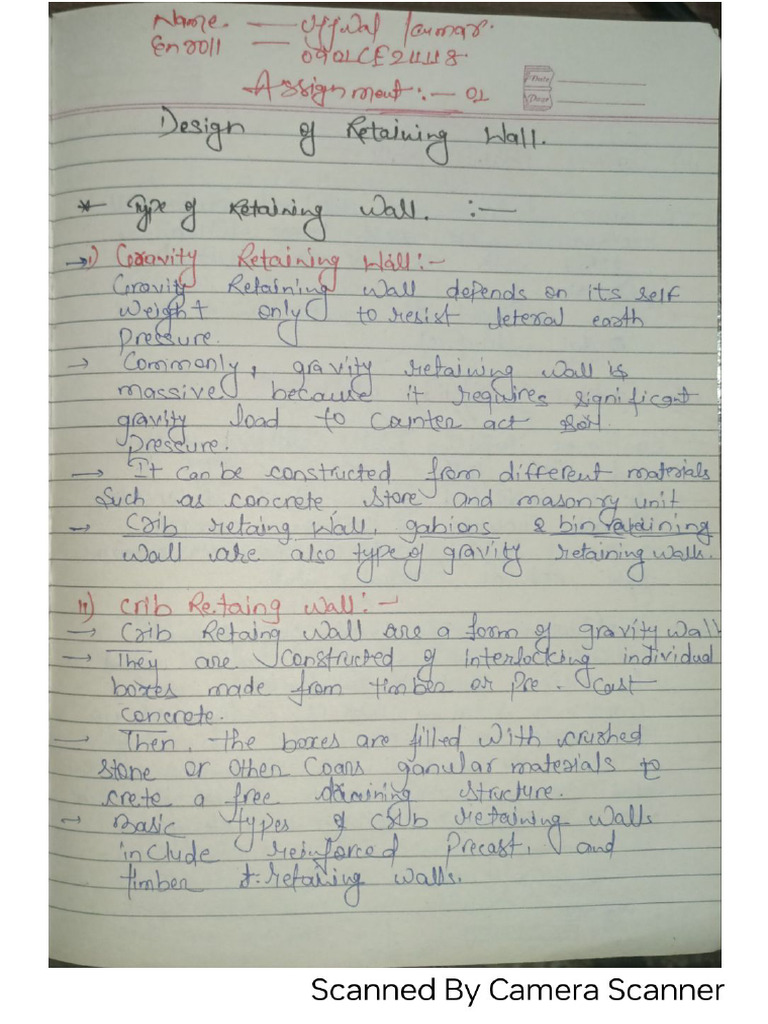 Name. — Ujjwal Kumar.
Enroll — 0901CE211118
Assignment:— 01
Date
Page
Design of Retaining Wall.
* Type of Retaining Wall. :—
→ i) Gravity Retaining Wall:-
Gravity Retaining Wall depends on its self
weight only to resist leteral earth
Pressure.
→ Commonly, gravity retaining wall is
massive because it requires significant
gravity load to counter act soil
pressure.
→ It can be constructed from different materials
Such as concrete, store and masonry unit
→ Crib retaing wall, gabions & bin retaining
wall are also type of gravity retaining walls.
ii) Crib Retaing Wall:-
→ Crib Retaing Wall are a form of gravity wall
→ They are constructed of interlocking individual
boxes made from timber or Pre-Cast
concrete.
→ Then, the boxes are filled with crushed
stone or other Coars ganular materials to
crete a free draining structure.
→ Basic types of crib retaining walls
include reinforced Precast, and
timber retaining walls.
Scanned By Camera Scanner